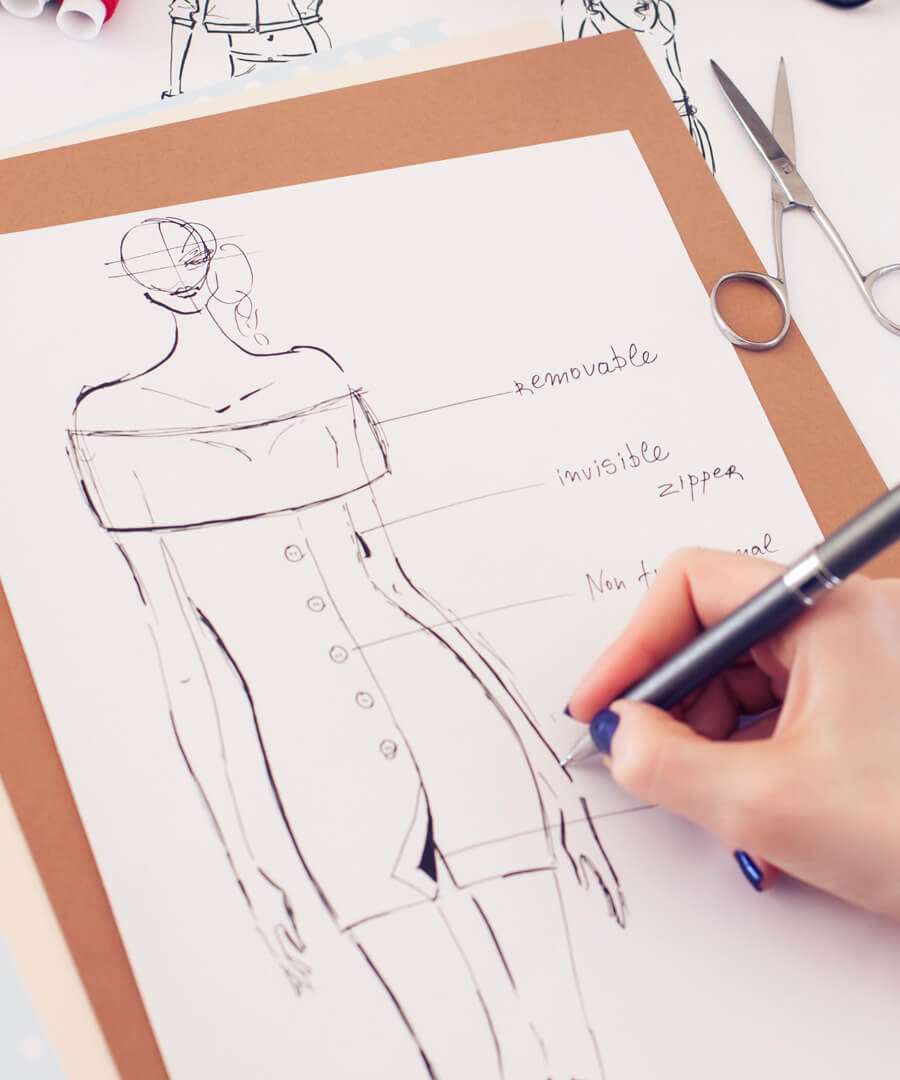 removable
invisible
zipper
Non